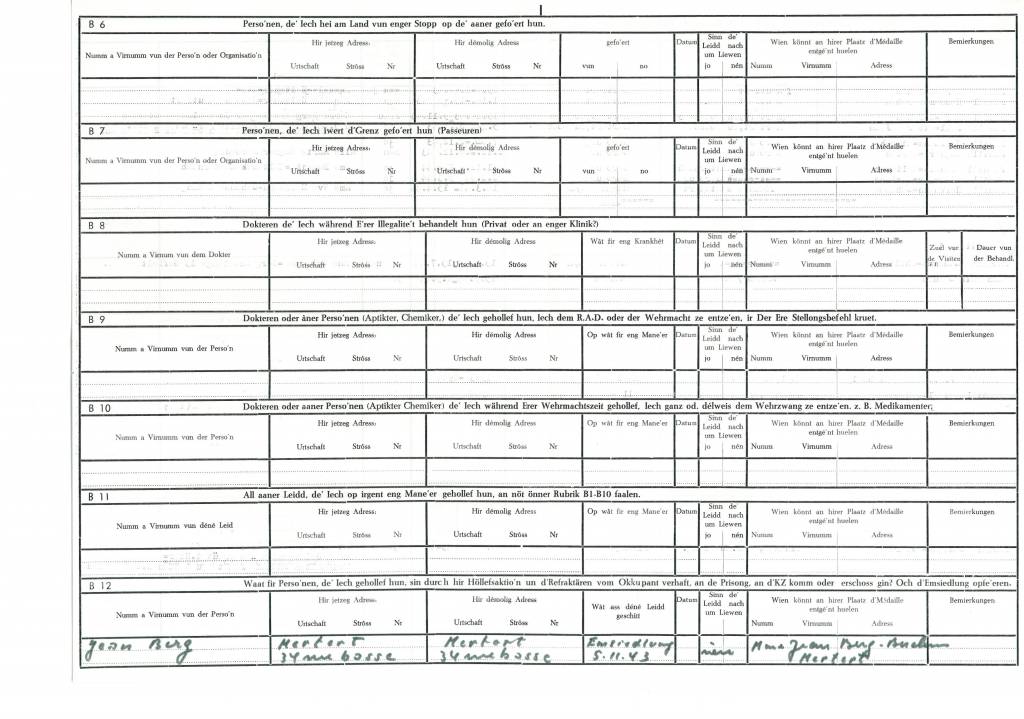 B 6 Perso'nen, de' Iech hei am Land vun enger Stopp op de' aaner gefo'ert hun.
Numm a Virnumm vun der Perso'n oder Organisatio'n Hir jetzeg Adress: Hir démolig Adress gefo'ert Datum Sinn de' Leidd nach um Liewen Wien könnt an hirer Plaatz d'Médaille entgé'nt huelen Bemierkungen
Urtschaft Ströss Nr Urtschaft Ströss Nr vun no jo nén Numm Virnumm Adress
B 7 Perso'nen, de' Iech iwert d'Grenz gefo'ert hun (Passeuren)
Numm a Virnumm vun der Perso'n oder Organisatio'n Hir jetzeg Adress: Hir démolig Adress gefo'ert Datum Sinn de' Leidd nach um Liewen Wien könnt an hirer Plaatz d'Médaille entgé'nt huelen Bemierkungen
Urtschaft Ströss Nr Urtschaft Ströss Nr vun no jo nén Numm Virnumm Adress
B 8 Dokteren de' Iech während E'rer Illegalite't behandelt hun (Privat oder an enger Klinik?)
Numm a Virnum vun dem Dokter Hir jetzeg Adress: Hir démolig Adress Wât fir eng Krankhét Datum Sinn de' Leidd nach um Liewen Wien könnt an hirer Plaatz d'Médaille entgé'nt huelen Zuel vun de Visiten Dauer vun der Behandl.
Urtschaft Ströss Nr Urtschaft Ströss Nr jo nén Numm Virnumm Adress
B 9 Dokteren oder âner Perso'nen (Aptikter, Chemiker,) de' Iech gehollef hun, Iech dem R.A.D. oder der Wehrmacht ze entze'en, ir Der Ere Stellongsbefehl kruet.
Numm a Virnumm vun der Perso'n Hir jetzeg Adress: Hir démolig Adress Op wât fir eng Mane'er Datum Sinn de' Leidd nach um Liewen Wien könnt an hirer Plaatz d'Médaille entgé'nt huelen Bemierkungen
Urtschaft Ströss Nr Urtschaft Ströss Nr jo nén Numm Virnumm Adress
B 10 Dokteren oder aaner Perso'nen (Aptikter Chemiker) de' Iech während Erer Wehrmachtszeit gehollef, Iech ganz od. délweis dem Wehrzwang ze entze'en. z. B. Medikamenter.
Numm a Virnumm vun der Perso'n Hir jetzeg Adress: Hir démolig Adress Op wât fir eng Mane'er Datum Sinn de' Leidd nach um Liewen Wien könnt an hirer Plaatz d'Médaille entgé'nt huelen Bemierkungen
Urtschaft Ströss Nr Urtschaft Ströss Nr jo nén Numm Virnumm Adress
B 11 All aaner Leidd, de' Iech op irgent eng Mane'er gehollef hun, an nöt önner Rubrik B1-B10 faalen.
Numm a Virnumm vun déné Leid Hir jetzeg Adress: Hir démolig Adress Op wât fir eng Mane'er Datum Sinn de' Leidd nach um Liewen Wien könnt an hirer Plaatz d'Médaille entgé'nt huelen Bemierkungen
Urtschaft Ströss Nr Urtschaft Ströss Nr jo nén Numm Virnumm Adress
B 12 Waat fir Perso'nen, de' Iech gehollef hun, sin durch hir Höllefsaktio'n un d'Refraktären vom Okkupant verhaft, an de Prisong, an d'KZ komm oder erschoss gin? Och d'Emsiedlung opfe'eren.
Numm a Virnumm vun der Perso'n Hir jetzeg Adress: Hir démolig Adress Wât ass déné Leidd geschitt Datum Sinn de' Leidd nach um Liewen Wien könnt an hirer Plaatz d'Médaille entgé'nt huelen Bemierkungen
Urtschaft Ströss Nr Urtschaft Ströss Nr jo nén Numm Virnumm Adress
Jean Berg Mertert Mertert Emsiedlung nén Mme Jean Berg-
34 rue basse 34 rue basse 5.11.43 Mertert